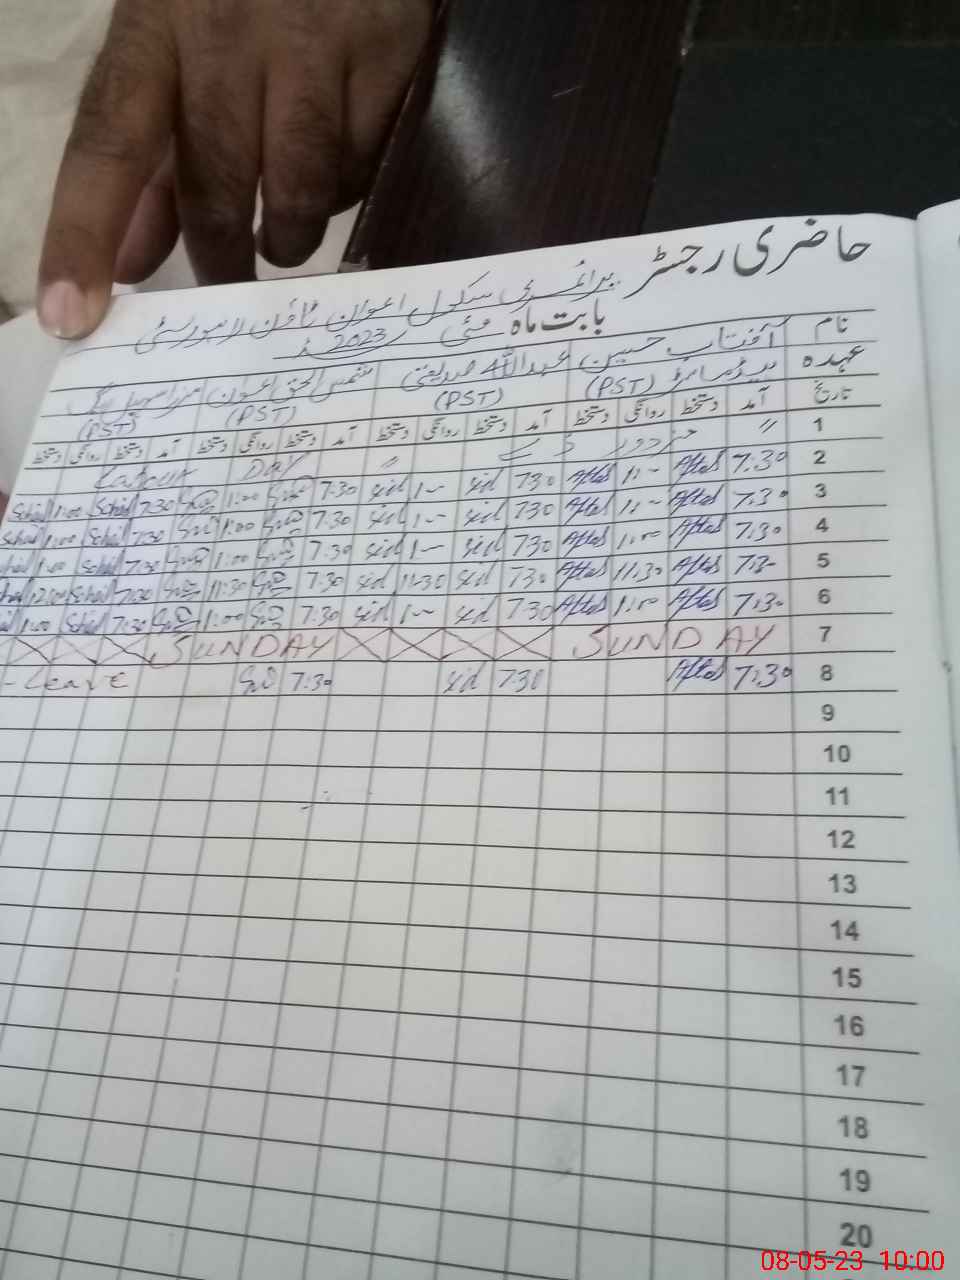 حاضری رجسٹر
پرائمری سکول اعوان ٹاؤن لاہور سٹی
بابت ماہ مئی 2023
نام آفتاب حسین عبداللہ صدیقی شمس الحق اعوان
عہدہ ہیڈماسٹر (PST) (PST) (PST) (PST)
تاریخ آمد دستخط روانگی دستخط آمد دستخط روانگی دستخط آمد دستخط روانگی دستخط آمد دستخط روانگی دستخط
1 〃 مزدور ڈے 〃 Labour DAY
2 7:30 Aftab 1:- Aftab 730 sid 1- sid 7:30 1:00 7:30 Sohail 1:00 Sohail
3 7:30 Aftab 1:- Aftab 730 sid 1- sid 7:30 1:00 7:30 Sohail 1:00
4 7:30 Aftab 1:00 Aftab 730 sid 1- sid 7:30 1:00 7:30 Sohail 1:00
5 7:3- Aftab 11:30 Aftab 730 sid 11-30 sid 7:30 11:30 7:30 Sohail 12:00
6 7:3- Aftab 1:00 Aftab 7:30 sid 1- sid 7:30 1:00 7:30 Sohail 1:00
7 SUNDAY SUNDAY
8 7:30 Aftab 730 sid 7:30 - Leave
9
10
11
12
13
14
15
16
17
18
19
20
08-05-23 10:00